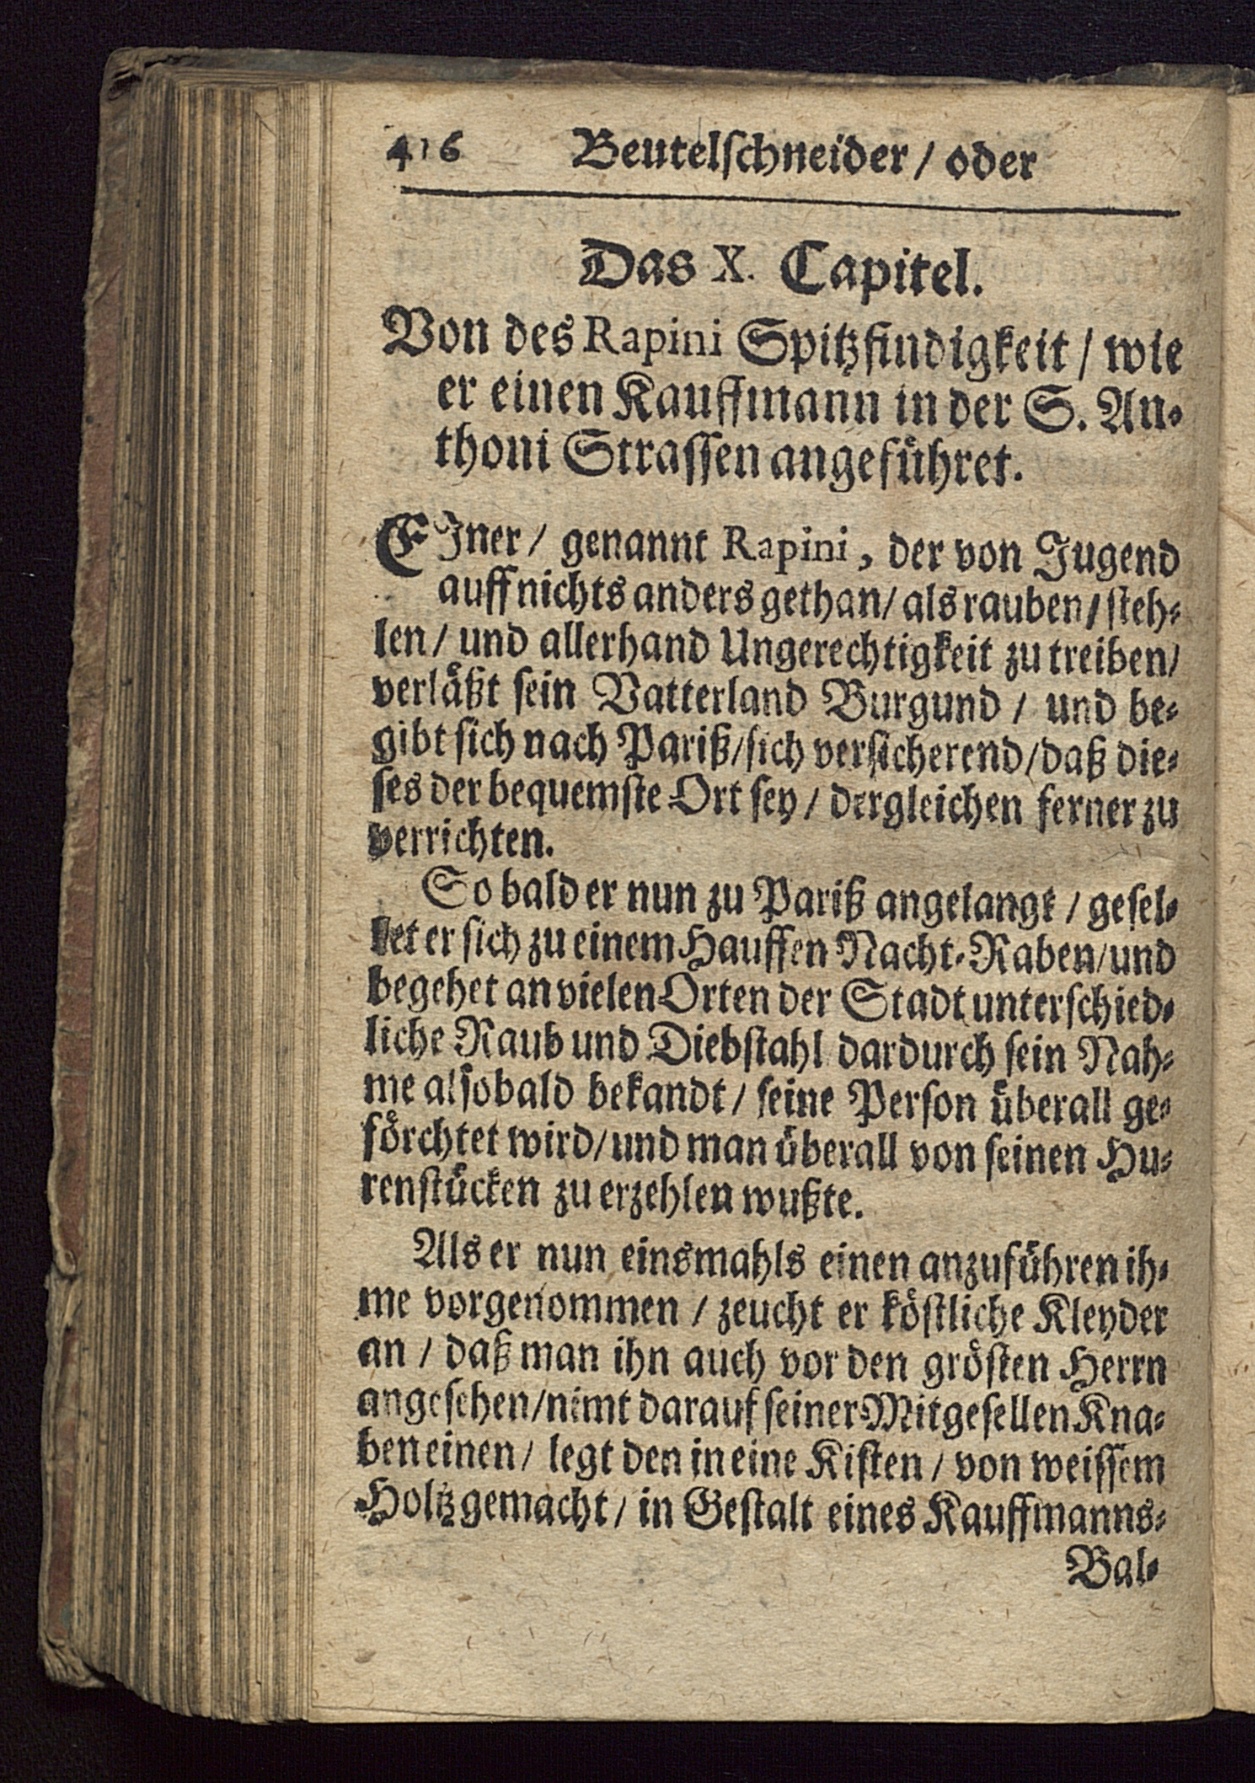 416 Beutelſchneider / oder
Das X. Capitel.
Von des Rapini Spitzfindigkeit / wie
er einen Kauffmann in der S. An-
thoni Straſſen angeführet.
EJner / genannt Rapini, der von Jugend
auff nichts anders gethan / als rauben / ſteh-
len / und allerhand Ungerechtigkeit zu treiben /
verläßt ſein Vatterland Burgund / und be-
gibt ſich nach Pariß / ſich verſicherend / daß die-
ſes der bequemſte Ort ſey / dergleichen ferner zu
verrichten.
So bald er nun zu Pariß angelangt / geſel-
let er ſich zu einem Hauffen Nacht-Raben / und
begehet an vielen Orten der Stadt unterſchied-
liche Raub und Diebſtahl dardurch ſein Nah-
me alſobald bekandt / ſeine Perſon überall ge-
förchtet wird / und man überall von ſeinen Hu-
renſtücken zu erzehlen wußte.
Als er nun einsmahls einen anzuführen ih-
me vorgenommen / zeucht er köſtliche Kleyder
an / daß man ihn auch vor den gröſten Herrn
angeſehen / nimt darauf ſeiner Mitgeſellen Kna-
ben einen / legt den in eine Kiſten / von weiſſem
Holtz gemacht / in Geſtalt eines Kauffmanns-
Bal-